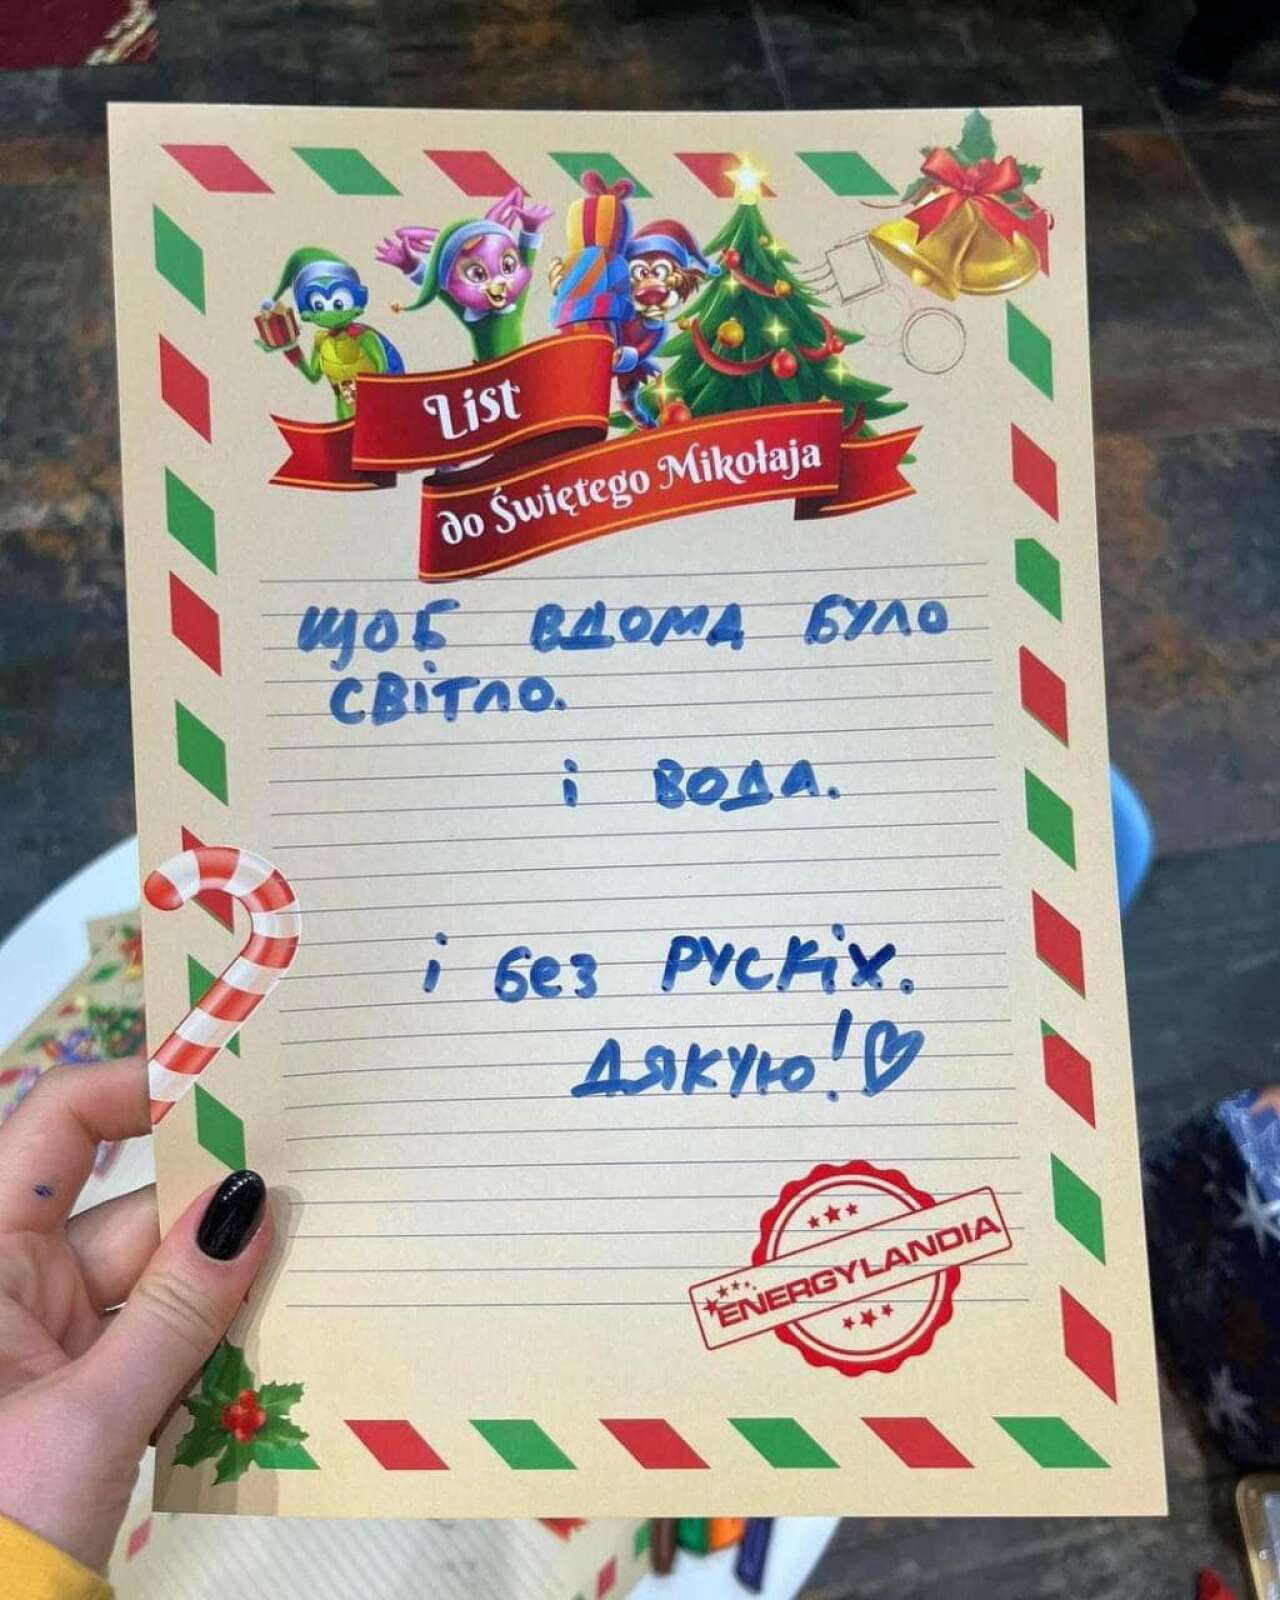 List
do Świętego Mikołaja
ЩОБ ВДОМА БУЛО
СВІТЛО.
і ВОДА.
і без РУСКІХ.
ДЯКУЮ!
ENERGYLANDIA